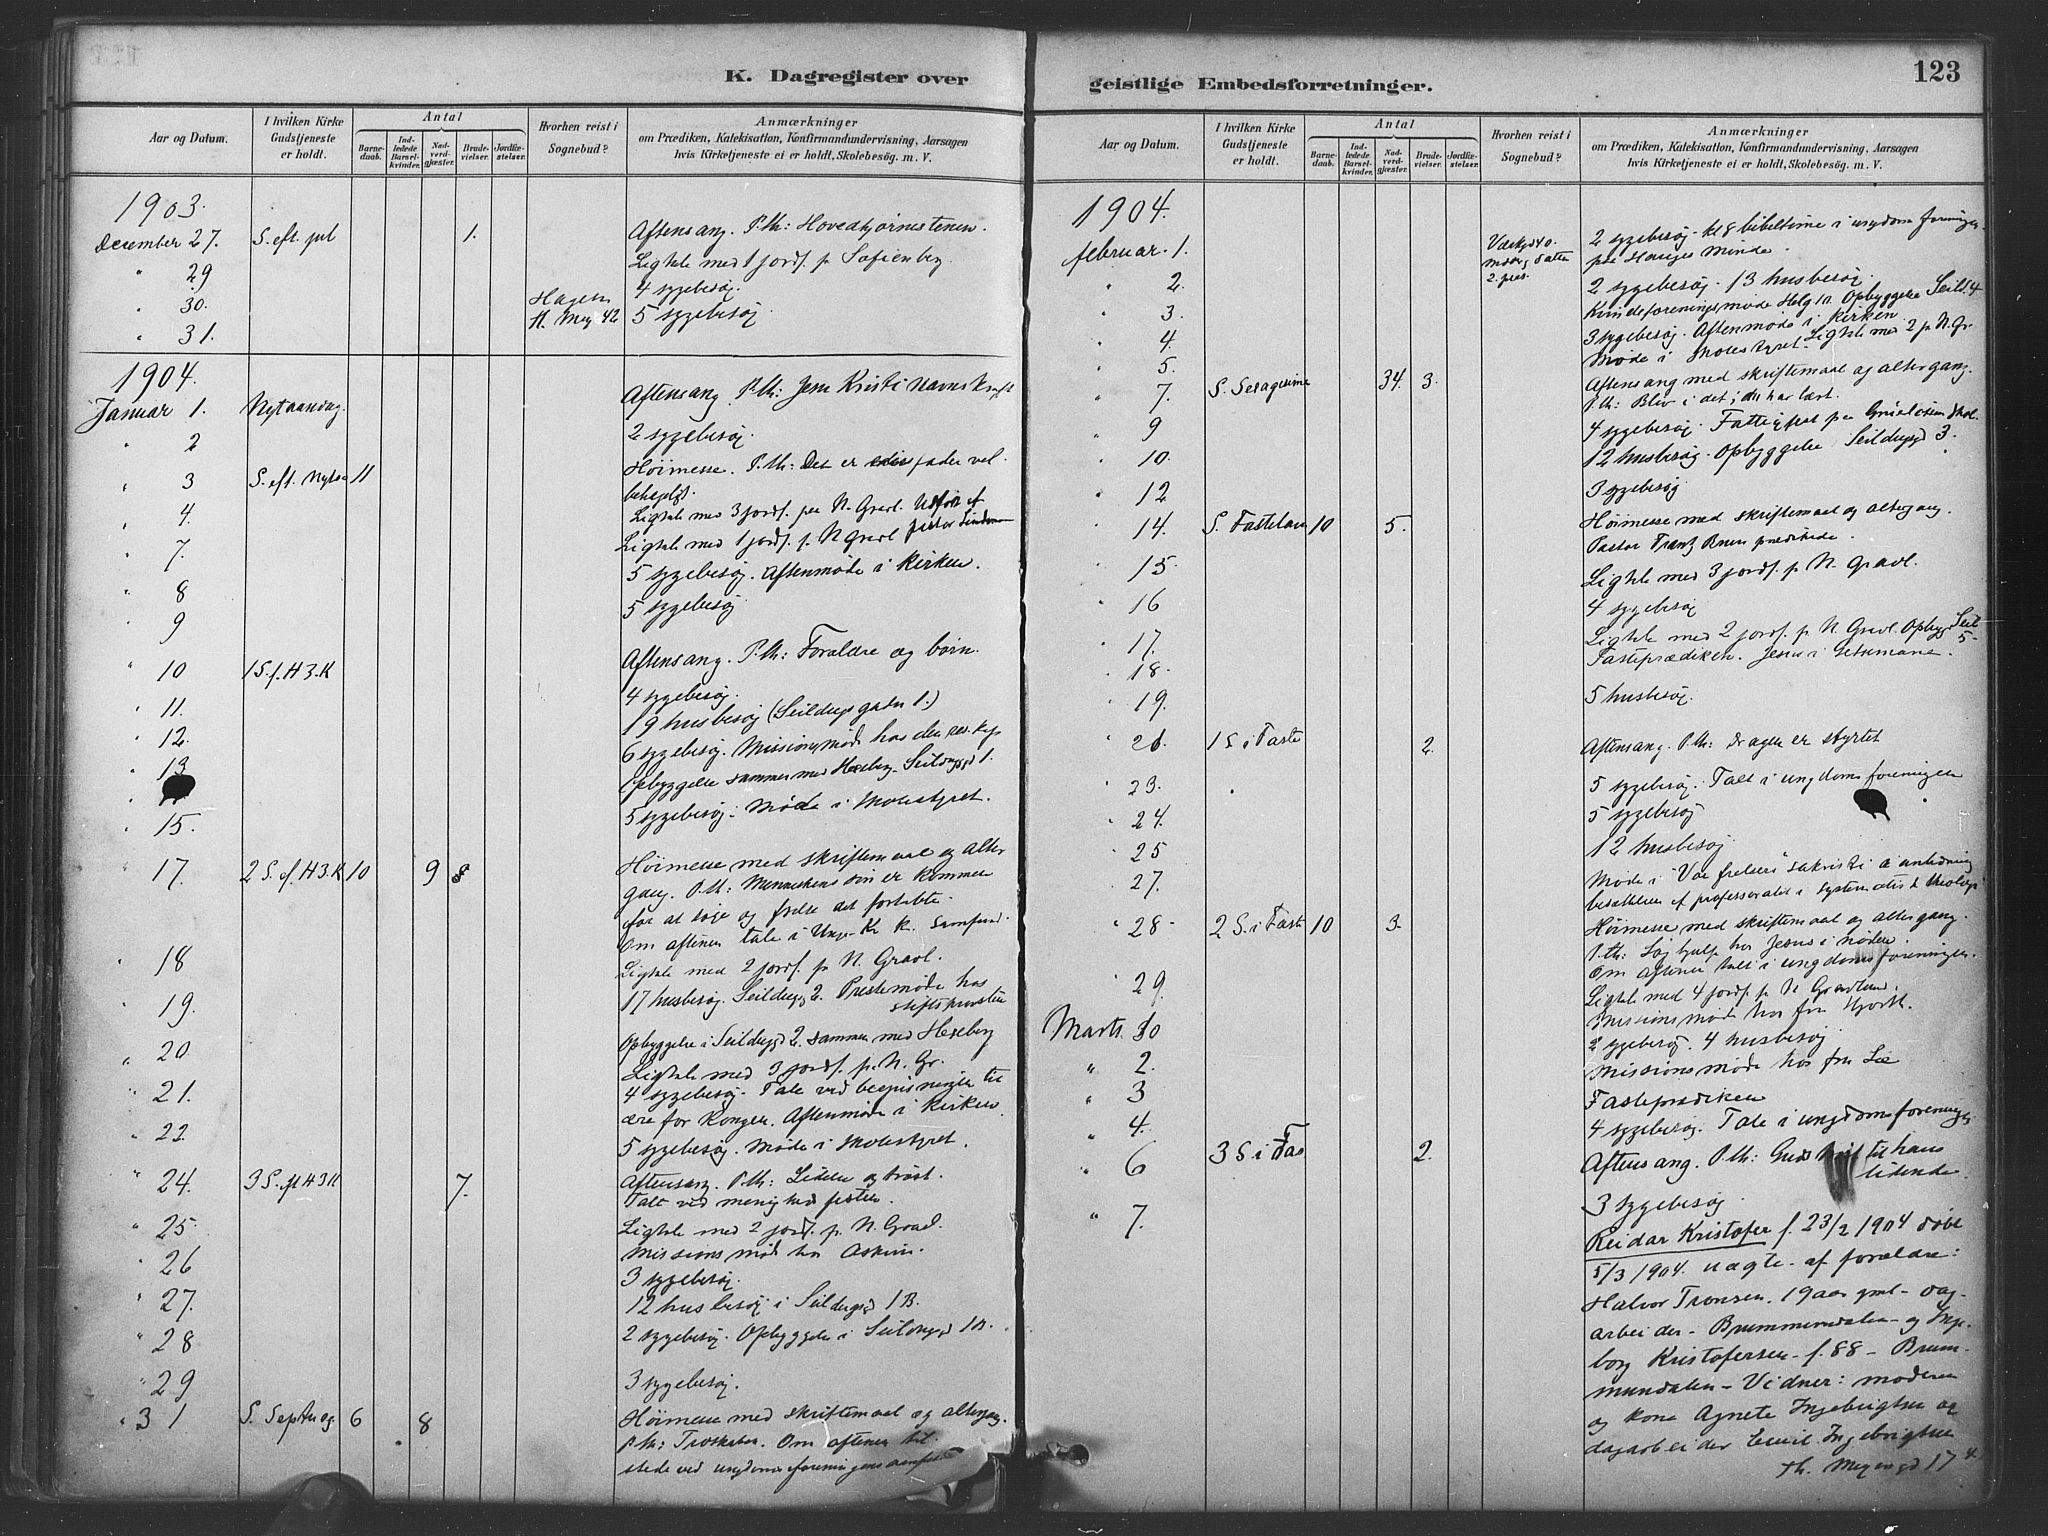 K. Dagregister over
Aar og Datum.
I hvilken Kirke Gudstjeneste er holdt.
Antal
Barnedaab.
Indledede Barselkvinder.
Nadverdgjester.
Brudevielser.
Jordfæstelser.
Hvorhen reist i Sognebud?
Anmærkninger
om Prædiken, Katekisation, Konfirmandundervisning, Aarsagen
hvis Kirketjeneste ei er holdt, Skolebesøg. m. V.
1903.
December 27. S. eft. jul 1. Aftensang. P.th: Hovedhjørnestenen.
" 29 Ligtale med 1 jordf. p. Sofienberg
" 30. Hagen 4 sygebesøg.
" 31. 42 5 sygebesøg
1904.
Januar 1. Nytaarsdag. Aftensang. P.th: Jesu Kristi navns kraft
" 2 2 sygebesøg.
" 3 S. eft. Nytaar 11 Høimesse. P.th: Det er eders fader vel-
behagligt.
" 4. Ligtale med 3 jordf. paa N. Gravl. Udført af
pastor
" 7. Ligtale med 1 jordf. p. N Gravl
" 8 5 sygebesøg. Aftenmøde i kirken.
" 9 5 sygebesøg
" 10 1 S. f. H 3. K Aftensang. P.th: Forældre og børn.
" 11. 4 sygebesøg.
" 12. 19 husbesøg (Seildugsgaden 1.)
" 13 6 sygebesøg. Missionsmøde hos den res. kap
Opbyggelse sammen med Hexeberg. Seildugsgd 1.
" 15. 5 sygebesøg. Møde i skolestyret.
" 17. 2 S. ef. H 3. K 10 9 8 Høimesse med skriftemaal og alter
gang. P.th: Menneskens søn er kommen
for at søge og frelse det fortabte.
Om aftenen tale i Unge K. k. samfund.
" 18 Ligtale med 2 jordf. p. N. Gravl.
" 19. 17 husbesøg. Seildugsgd 2. Prestemøde hos
stiftsprovsten
" 20 Opbyggelse i Seildugsgd 2. sammen med Hexeberg
" 21. Ligtale med 3 jordf. p. N. Gr.
4 sygebesøg. Tale ved bespisningen til
ære for kongen. Aftenmøde i kirken.
" 22. 5 sygebesøg. Møde i skolestyret.
" 24. 3 S. ef H 3 K 7. Aftensang. P.th: Lidelse og trøst.
Tale ved menighedsfesten.
" 25. Ligtale med 2 jordf. p. N. Gravl.
Missionsmøde hos Askim.
" 26 3 sygebesøg.
" 27. 12 husbesøg i Seildugsgd 1 B.
" 28 2 sygebesøg. Opbyggelse i Seildugsgd 1 B.
" 29 3 sygebesøg.
" 31 S. Septuag 6 8 Høimesse med skriftemaal og altergang.
P.th: Troskaben. Om aftenen til
stede ved ungdomsforeningens
geistlige Embedsforretninger.
123
Aar og Datum.
I hvilken Kirke Gudstjeneste er holdt.
Antal
Barnedaab.
Indledede Barselkvinder.
Nadverdgjester.
Brudevielser.
Jordfæstelser.
Hvorhen reist i Sognebud?
Anmærkninger
om Prædiken, Katekisation, Konfirmandundervisning, Aarsagen
hvis Kirketjeneste ei er holdt, Skolebesøg. m. V.
1904.
Februar 1. 2 sygebesøg. kl 8 bibeltime i ungdomsforeningen
paa Hauges Minde.
" 2. 2 sygebesøg. 13 husbesøg
" 3. Kvindeforeningsmøde Opbyggelse Seild. 4
" 4. 3 sygebesøg. Aftenmøde i kirken
" 5. Møde i skolestyret. Ligtale med 2 p. N. Gr.
" 7. S. Sexagesima 34. 3. Aftensang med skriftemaal og altergang.
P.th: Bliv i det, du har lært.
" 9 4 sygebesøg. Fattigfest paa skole.
" 10. 12 husbesøg. Opbyggelse Seildugsgd 3.
" 12 3 sygebesøg
" 14. S. Fastelavn 10 5. Høimesse med skriftemaal og altergang.
Pastor Frantz Bruun prædikede.
" 15. Ligtale med 3 jordf. p N. Gravl.
" 16 4 sygebesøg
" 17. Ligtale med 2 jordf. p N. Gravl. Opbygg. Seild
5.
" 18. Fasteprædiken. Jesus i Getsemane.
" 19. 5 husbesøg.
" 21. 1 S. i Faste 2. Aftensang. P.th: Dragen er styrtet
" 23. 5 sygebesøg. Tale i ungdomsforeningen
" 24. 5 sygebesøg
" 25 12 husbesøg
" 27. Møde i "Vor frelsers" sakristi i anledning
besættelsen af professoratet i systematisk theologi
" 28. 2 S. i Faste 10 3. Høimesse med skriftemaal og altergang.
P.th: Søg hjælp hos Jesus i nøden.
Om aftenen tale i ungdomsforeningen.
" 29. Ligtale med 4 jordf. p. N Gravlund.
Missionsmøde hos fru Hjorth.
Marts 2 sygebesøg. 4 husbesøg
" 2. Missionsmøde hos fru Lie
" 3 Fasteprædiken
" 4. 4 sygebesøg. Tale i ungdomsforeningen
" 6 3 S. i Fas 2. Aftensang. P.th: Guds til hans
lidende.
" 7. 3 sygebesøg
Reidar Kristofer f. 23/2 1904 døbt
5/3 1904. uægte. af forældre:
Halvor Tronsen. 19 aar gml - dag-
arbeider - Brummundalen - og Inge-
borg Kristofersen - f. 88 - Brum-
mundalen - Vidner: moderen
og kone Agnete Ingebrigtsen og
dagarbeider Emil Ingebrigtsen
th. Meyersgd 17 4.